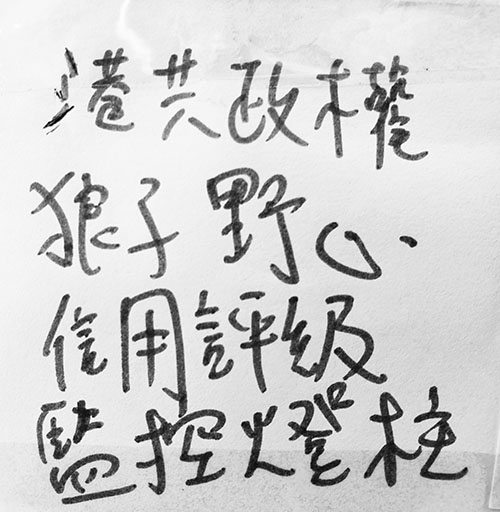 港共政權
狼子野心
信用評級
監控燈柱